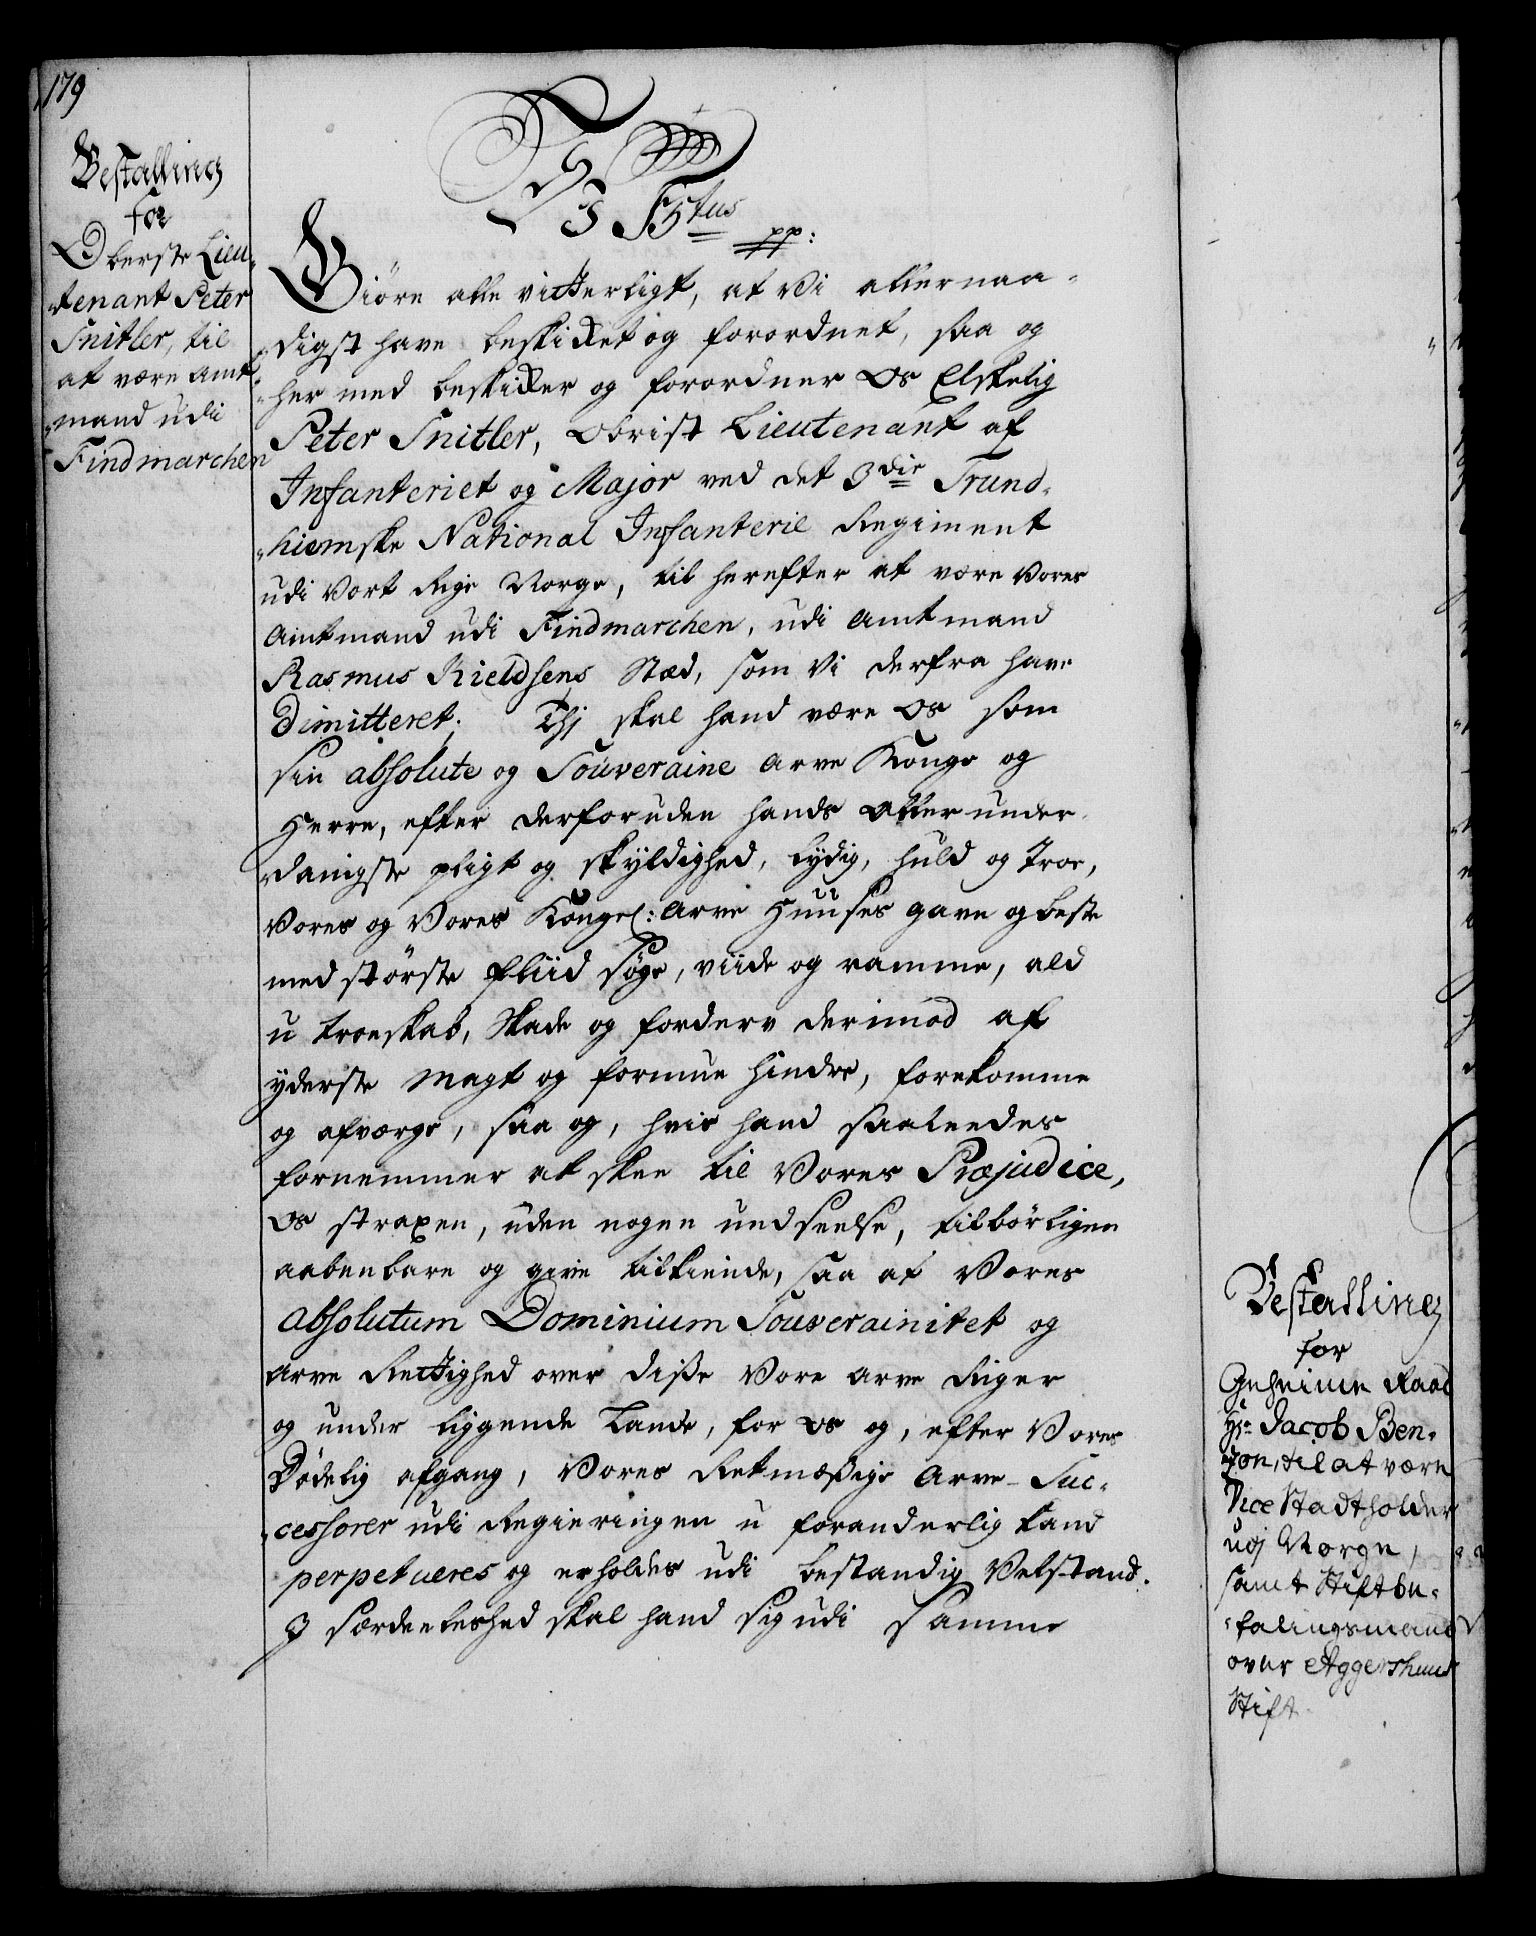 179
Bestalling
for
Oberste Lieu-
tenant Peter
Snitler, til
at være Amt-
mand udi
Findmarchen
F 5tus pp:
Giöre alle vitterligt, at Vi allernaa-
digst have beskikket og forordnet, saa og
her med beskikker og forordner Os Elskelig
Peter Snitler, Obrist Lieutenant af
Infanteriet og Major ved det 3die Trund-
hiemske National Infanterie Regiment
udi Vort Rige Norge, til herefter at være Vores
Amtmand udi Findmarchen, udi Amtmand
Rasmus Kieldsens Stæd, som Vi derfra have
Dimitteret; Thj skal hand være Os som
sin absolute og Souveraine Arve Konge og
Herre, efter derforuden hands Aller under-
danigste pligt og skyldighed, lydig, huld og Troe,
Vores og Vores Kongel: Arve Huuses gavn og beste
med störste fliid söge, viide og ramme, ald
u troeskab, Skade og forderv derimod af
yderste Magt og formue hindre, forekomme
og afværge, saa og, hvis hand saaleedes
fornemmer at skee til Vores Præjudice,
Os straxen, uden nogen undseelse, tilbörligen
aabenbare og give tilkiende, saa at Vores
absolutum Dominium Souverainitet og
Arve Rettighed over disse Vore Arve Riger
og under liggende Lande, for Os og, efter Vores
Dödelig afgang, Vores Retmæssige Arve-Suc-
cessorer udi Regieringen u foranderlig kand
perpetueres og erholdes udi bestandig Velstand.
I Særdeeleshed skal hand sig udi samme
Bestalling
for
Geheime Raad
Hr Jacob Ben-
zon, til at være
Vice Stadtholder
udj Norge,
samt Stiftbe-
falingsmand
over Aggershuus
Stift.